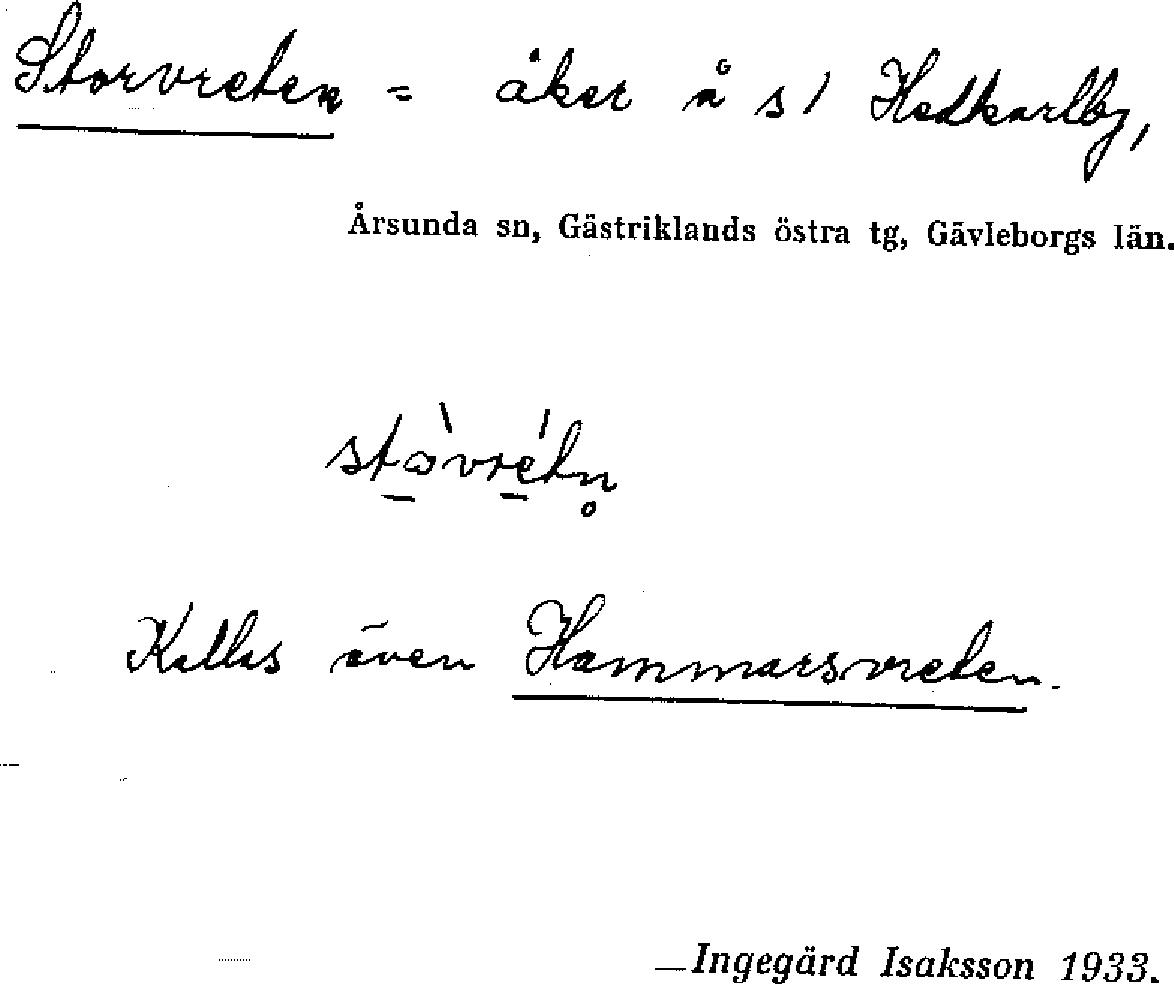 Storvreten = åker å s/ Hedkarlby,
Årsunda sn, Gästriklands östra tg, Gävleborgs län.
stò̲vré̲tn̥
Kallas även Hammarsvreten.
Ingegärd Isaksson 1933.